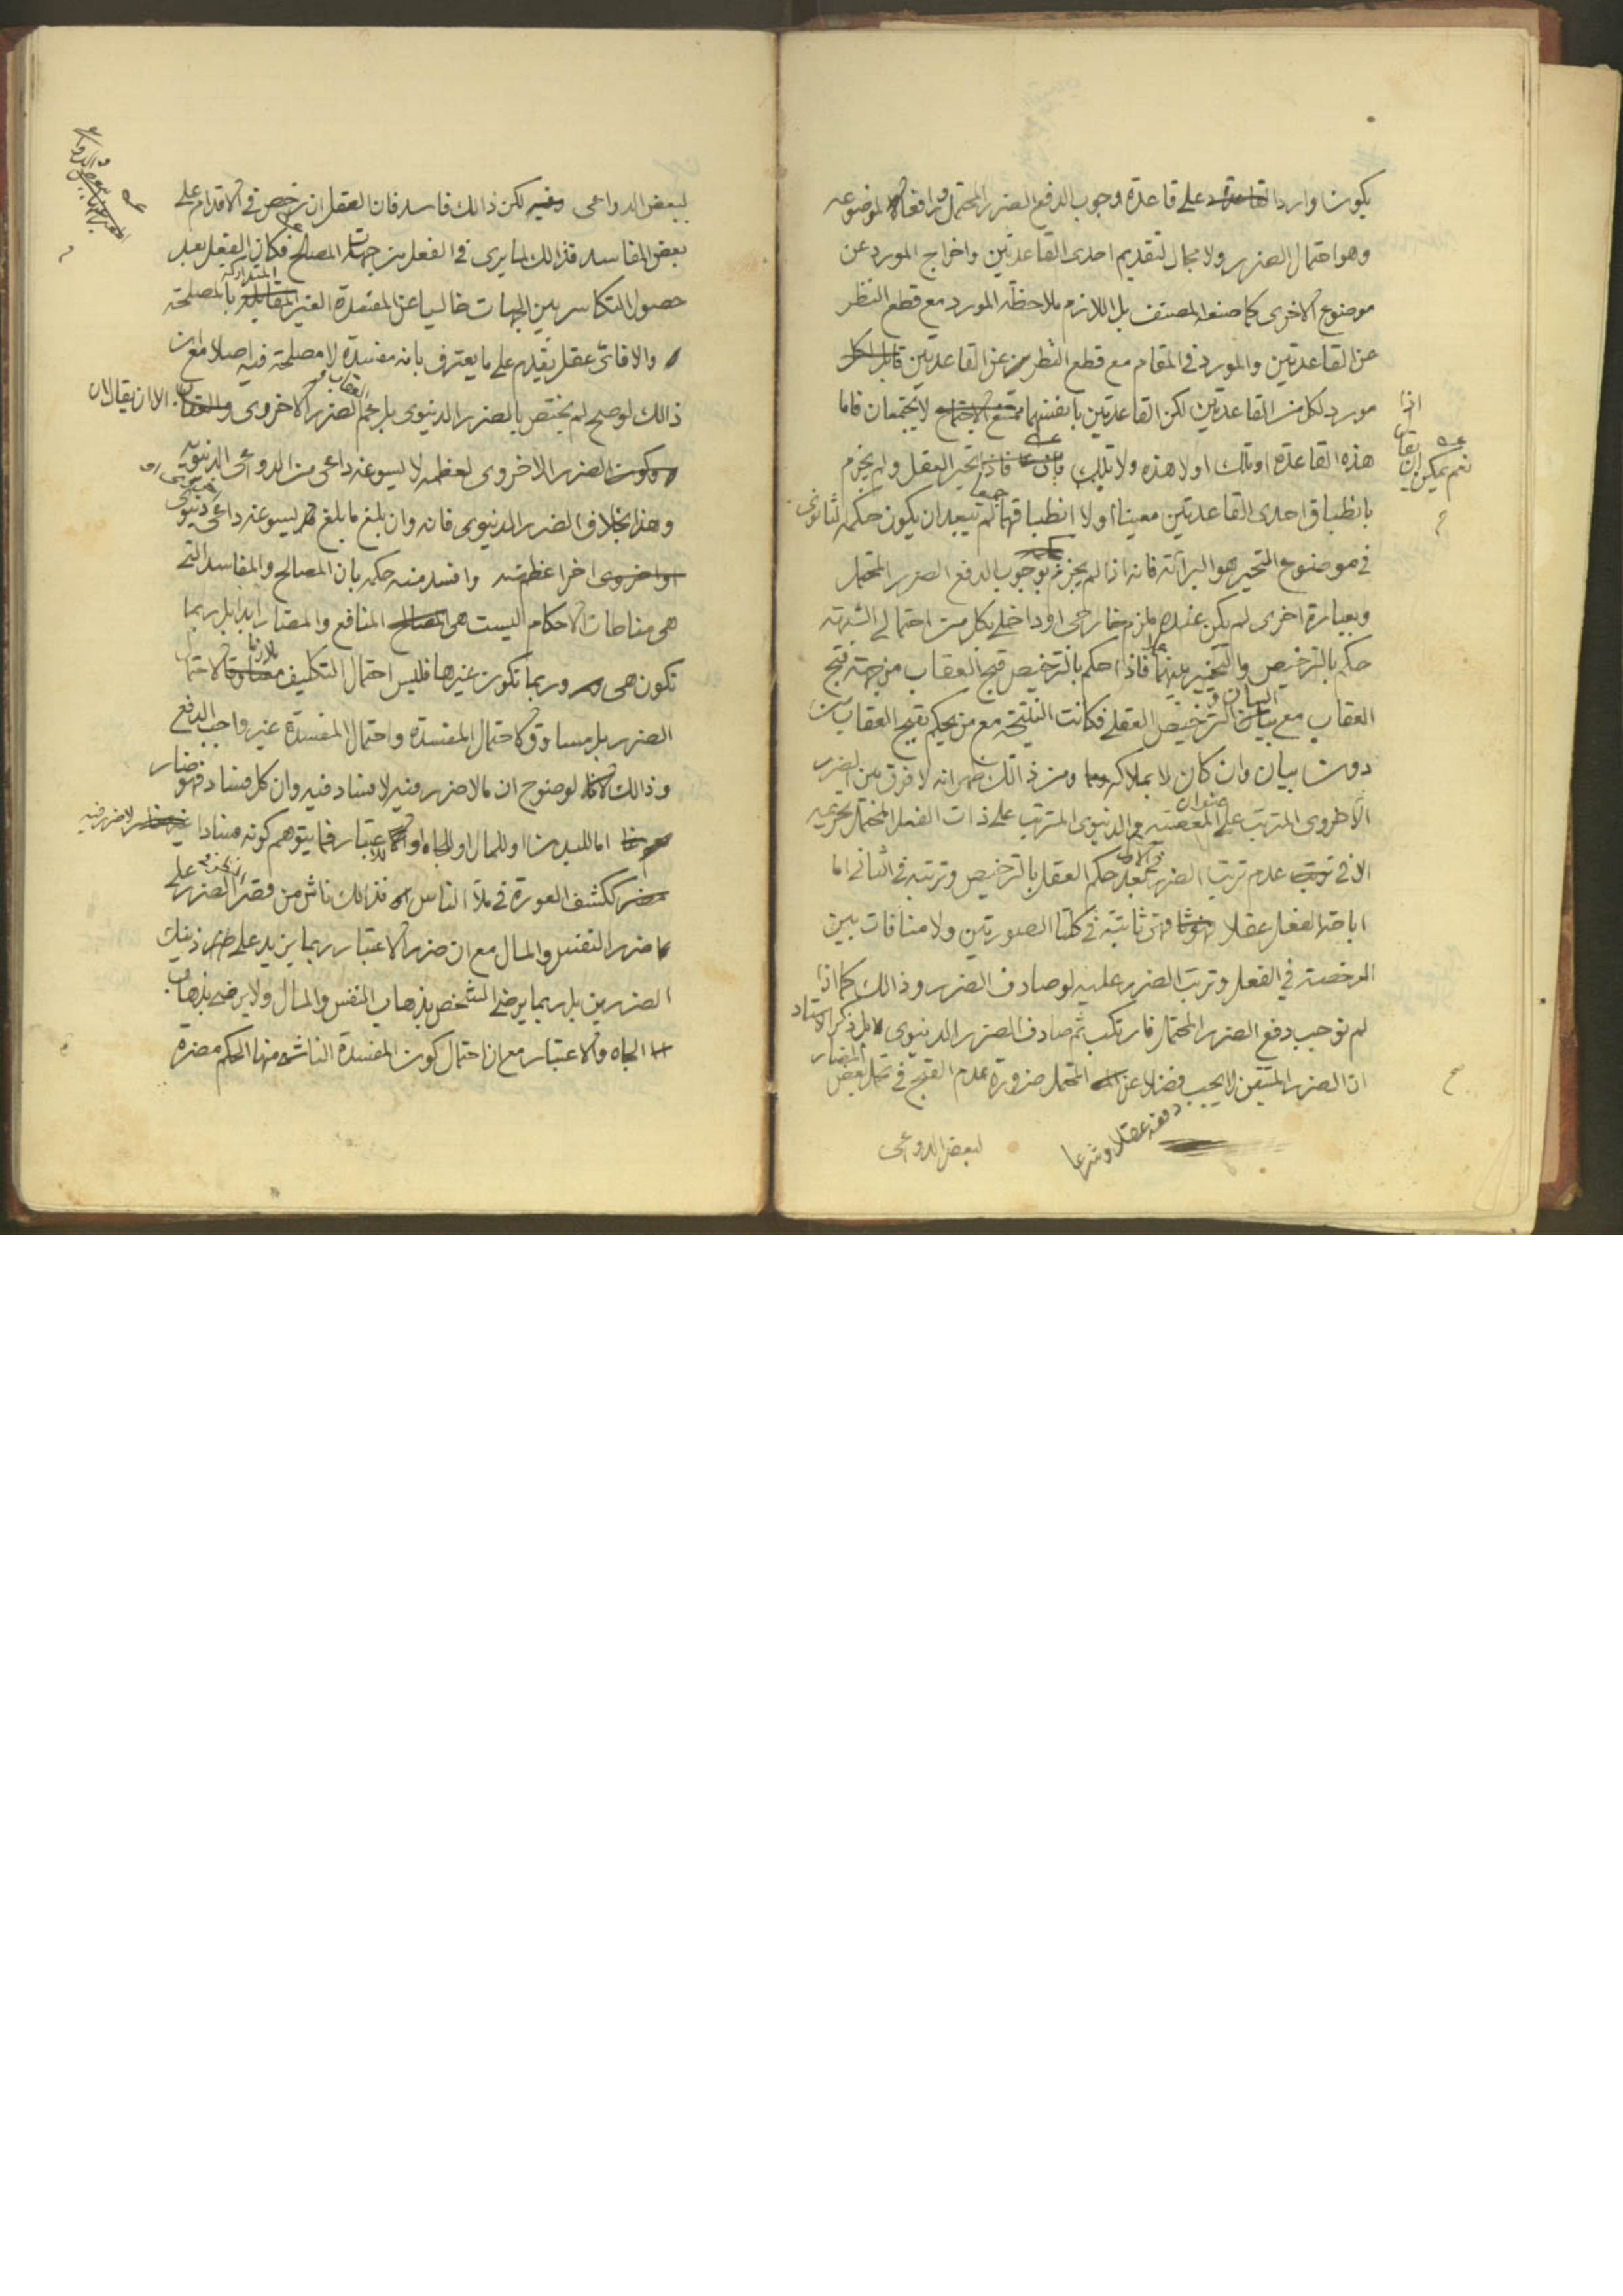 يكون واردا على قاعدة وجوب الدفع الضرر المحتمل ورافعا لموضوعه
وهو احتمال الضرر ولا مجال لتقديم احدى القاعدتين واخراج المورد عن
موضوع الاخرى كما صنعه المصنف بل اللازم ملاحظة المورد مع قطع النظر
عن القاعدتين والمورد في المقام مع قطع النظر عن القاعدتين قابل
مورد لكل من القاعدتين لكن القاعدتين بانفسهما لا يجتمعان فاما
هذه القاعدة او تلك او لا هذه ولا تلك فاذا تحير العقل ولم يجزم
بانطباق احدى القاعدتين معينا او لا انطباقهما لم يبعد ان يكون حكمه الثانوى
في موضوع التحير هو البرائة فانه اذا لم يجزم بوجوب الدفع الضرر المحتمل
وبعبارة اخرى لم يكن عنده ملزم خارجى او داخلى بكل من احتمالى الشبهة
حكم بالترخيص والتخيير بينهما فاذا حكم بالترخيص قبح العقاب من جهة قبح
العقاب مع الترخيص العقلى فكانت النتيجة مع من يحكم بقبح العقاب من
دون بيان وان كان لا بملاكه ومن ذالك ظهر انه لا فرق بين الضرر
الاخروى المترتب على عنوان المعصية والدنيوى المترتب على ذات الفعل المحتمل تحريمه
الا في عدم ترتب الضرر في الاول بعد حكم العقل بالترخيص وترتبه في الثانى اما
اباحة الفعل عقلا فهى ثابتة في كلتا الصورتين ولا منافات بين
الرخصة في الفعل وترتب الضرر عليه لو صادف الضرر وذالك كما اذا
لم نوجب دفع الضرر المحتمل فارتكب ثم صادف الضرر الدنيوى بل ذكر الاستاد
ان الضرر المتيقن لا يجب دفعه عقلا وشرعا فضلا عن المحتمل ضرورة عدم القبح في تحمل بعض المضار
لبعض الدواعى
نعم يمكن ان يقال اذا
لبعض الدواعى لكن ذالك فاسد فان العقل ان رخص في الاقدام على
بعض المفاسد فذالك لما يرى في الفعل من جهات المصالح فكان الفعل بعد
حصول التكاسر بين الجهات خاليا عن المفسدة الغير المتداركة بالمصلحة
والا فاى عقل يقدم على ما يعترف بانه مفسدة لا مصلحة فيه اصلا مع ان
ذالك لو صح لم يختص بالضرر الدنيوى بل عم الضرر الاخروى والعقاب الا ان يقال ان
الضرر الاخروى لعظمه لا يسوغه داعى من الدواعى الدنيوية
وهذا بخلاف الضرر الدنيوى فانه وان بلغ ما بلغ يسوغه داعى دنيوى
وافسد منه حكمه بان المصالح والمفاسد التى
هى مناطات الاحكام ليست هى المنافع والمضار ابدا بل ربما
تكون هى وربما تكون غيرها فليس احتمال التكليف ملازما لاحتمال
الضرر بل مساوق لاحتمال المفسدة واحتمال المفسدة غير واجب الدفع
وذالك لوضوح ان ما لا ضرر فيه لا فساد فيه وان كل فساد فهو ضار
اما للبدن او للمال او للجاه او للاعتبار فما يتوهم كونه فسادا لا ضرر فيه
ككشف العورة في ملأ الناس فذالك ناش من قصر الضرر على
ضرر النفس والمال مع ان ضرر الاعتبار ربما يزيد على ذينك
الضررين بل ربما يرضى الشخص بذهاب النفس والمال ولا يرضى بذهاب
الجاه والاعتبار مع ان احتمال كون المفسدة الناشئ منها الحكم مضرة